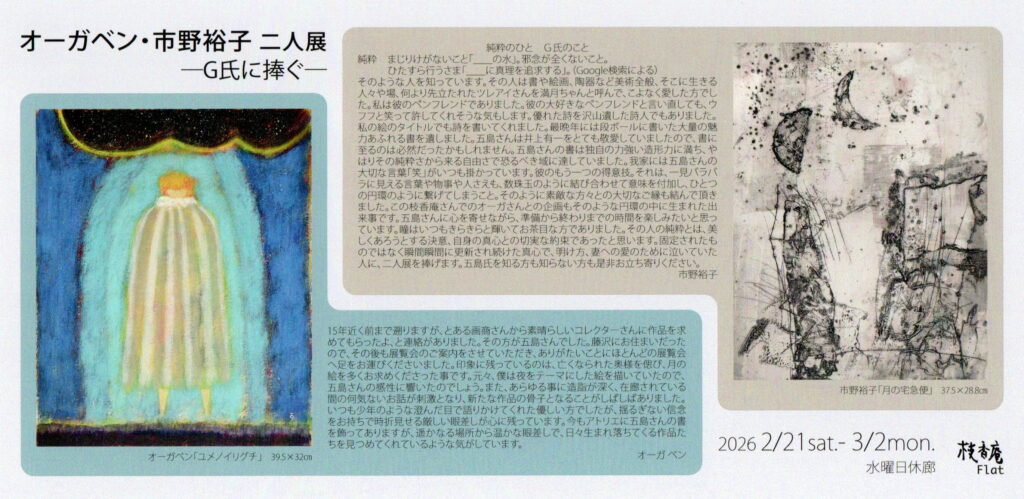 オーガベン・市野裕子 二人展
―G氏に捧ぐ―
純粋のひと　G氏のこと
純粋　まじりけがないこと「＿＿の水」。邪念が全くないこと。
ひたすら行うさま「＿＿に真理を追求する」。(Google検索による)
そのような人を知っています。その人は書や絵画、陶器など美術全般、そこに生きる
人々や場、何より先立たれたツレアイさんを満月ちゃんと呼んで、こよなく愛した方でし
た。私は彼のペンフレンドでありました。彼の大好きなペンフレンドと言い直しても、ウ
フフと笑って許してくれそうな気もします。優れた詩を沢山遺した詩人でもありました。
私の絵のタイトルでも詩を書いてくれました。最晩年には段ボールに書いた大量の魅
力あふれる書を遺しました。五島さんは井上有一をとても敬愛していましたので、書に
至るのは必然だったかもしれません。五島さんの書は独自の力強い造形力に満ち、や
はりその純粋さから来る自由で恐るべき域に達していました。我家には五島さんの
大切な言葉「笑」がいつも掛かっています。彼のもう一つの得意技。それは、一見バラバ
ラに見える言葉や物事や人さえも、数珠玉のように結び合わせて意味を付加し、ひとつ
の円環のように繋げてしまうこと。そのように素敵な方々との大切なご縁も結んで頂き
ました。この枝香庵さんでのオーガさんとの企画もそのような円環の中に生まれた出
来事です。五島さんに心を寄せながら、準備から終わりまでの時間を楽しみたいと思っ
ています。瞳はいつもきらきらと輝いてお茶目な方でありました。その人の純粋とは、美
しくあろうとする決意、自身の真心との切実な約束であったと思います。固定されたも
のではなく瞬間瞬間に更新され続けた真心で、明け方、妻への愛のために泣いていた
人に、二人展を捧げます。五島氏を知る方も知らない方も是非お立ち寄りください。
市野裕子
15年近く前まで遡りますが、とある画商さんから素晴らしいコレクターさんに作品を求
めてもらったよ、と連絡がありました。その方が五島さんでした。藤沢にお住まいだった
ので、その後も展覧会のご案内をさせていただき、ありがたいことにほとんどの展覧会
へ足をお運びくださいました。印象に残っているのは、亡くなられた奥様を偲び、月の
絵を多くお求めくださった事です。元々、僕は夜をテーマにした絵を描いていたので、
五島さんの感性に響いたのでしょう。また、あらゆる事に造脂が深く、在廊されている
間の何気ないお話が刺激となり、新たな作品の骨子となることがしばしばありました。
いつも少年のような澄んだ目で語りかけてくれた優しい方でしたが、揺るぎない信念
をお持ちで時折見せる厳しい眼差しが心に残っています。今もアトリエに五島さんの書
を飾ってありますが、遥かなる場所から温かな眼差しで、日々生まれ落ちてくる作品た
ちを見つめてくれているような気がしています。
オーガ ベン
オーガベン「ユメノイリグチ」　39.5×32㎝
市野裕子「月の宅急便」　37.5×28.8㎝
2026 2/21sat.- 3/2mon.
水曜日休廊
枝香庵
Flat